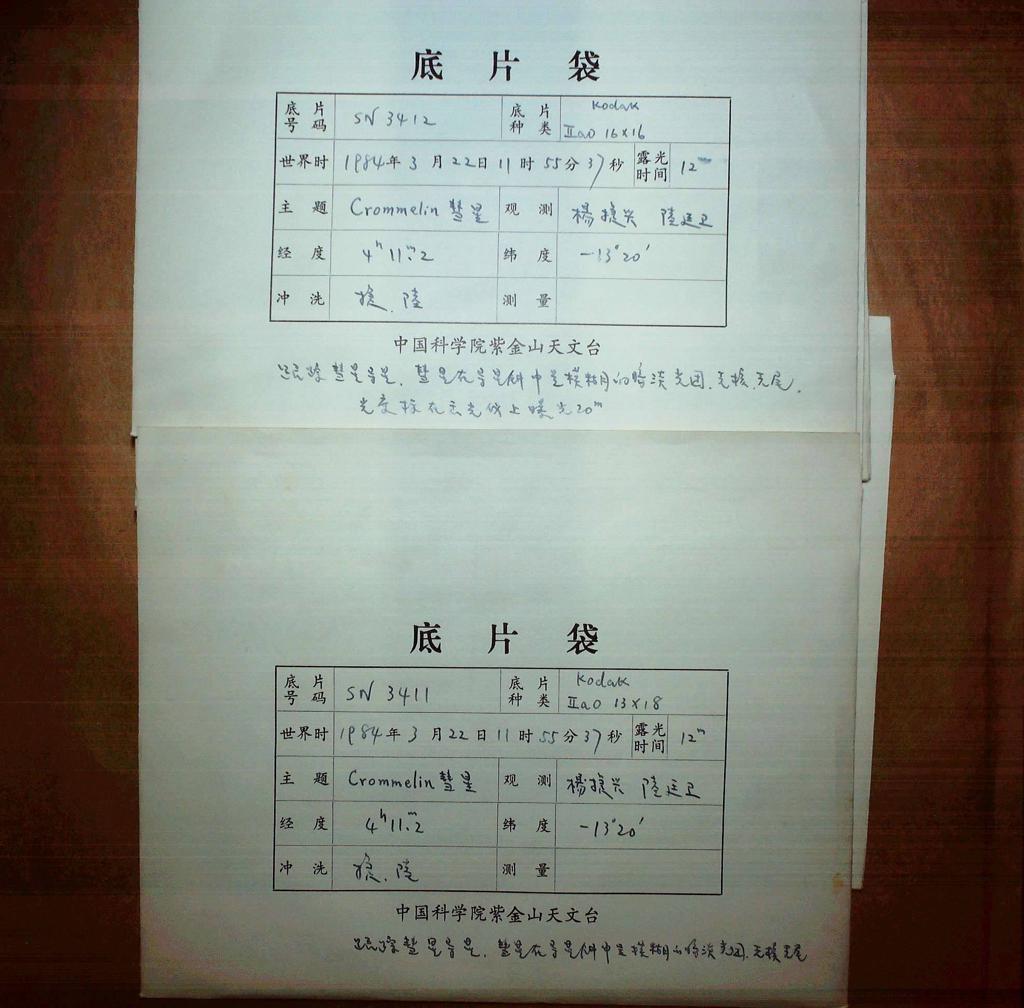 底片袋
底片号码 SN 3412 底片种类 Kodak IIaO 16×16
世界时 1984年3月22日11时55分37秒 露光时间 12ᵐ
主题 Crommelin 彗星 观测 楊捷兴 陸廷卫
经度 4ʰ11ᵐ.2 纬度 -13°20′
冲洗 捷、陸 测量
中国科学院紫金山天文台
跟踪彗星导星,彗星在导星镜中呈模糊的暗淡光团,无核、无尾,
光度标在示光仪上曝光20ᵐ
底片袋
底片号码 SN 3411 底片种类 Kodak IIaO 13×18
世界时 1984年3月22日11时55分37秒 露光时间 12ᵐ
主题 Crommelin 彗星 观测 楊捷兴 陸廷卫
经度 4ʰ11ᵐ.2 纬度 -13°20′
冲洗 捷、陸 测量
中国科学院紫金山天文台
跟踪彗星导星,彗星在导星镜中呈模糊的暗淡光团,无核无尾